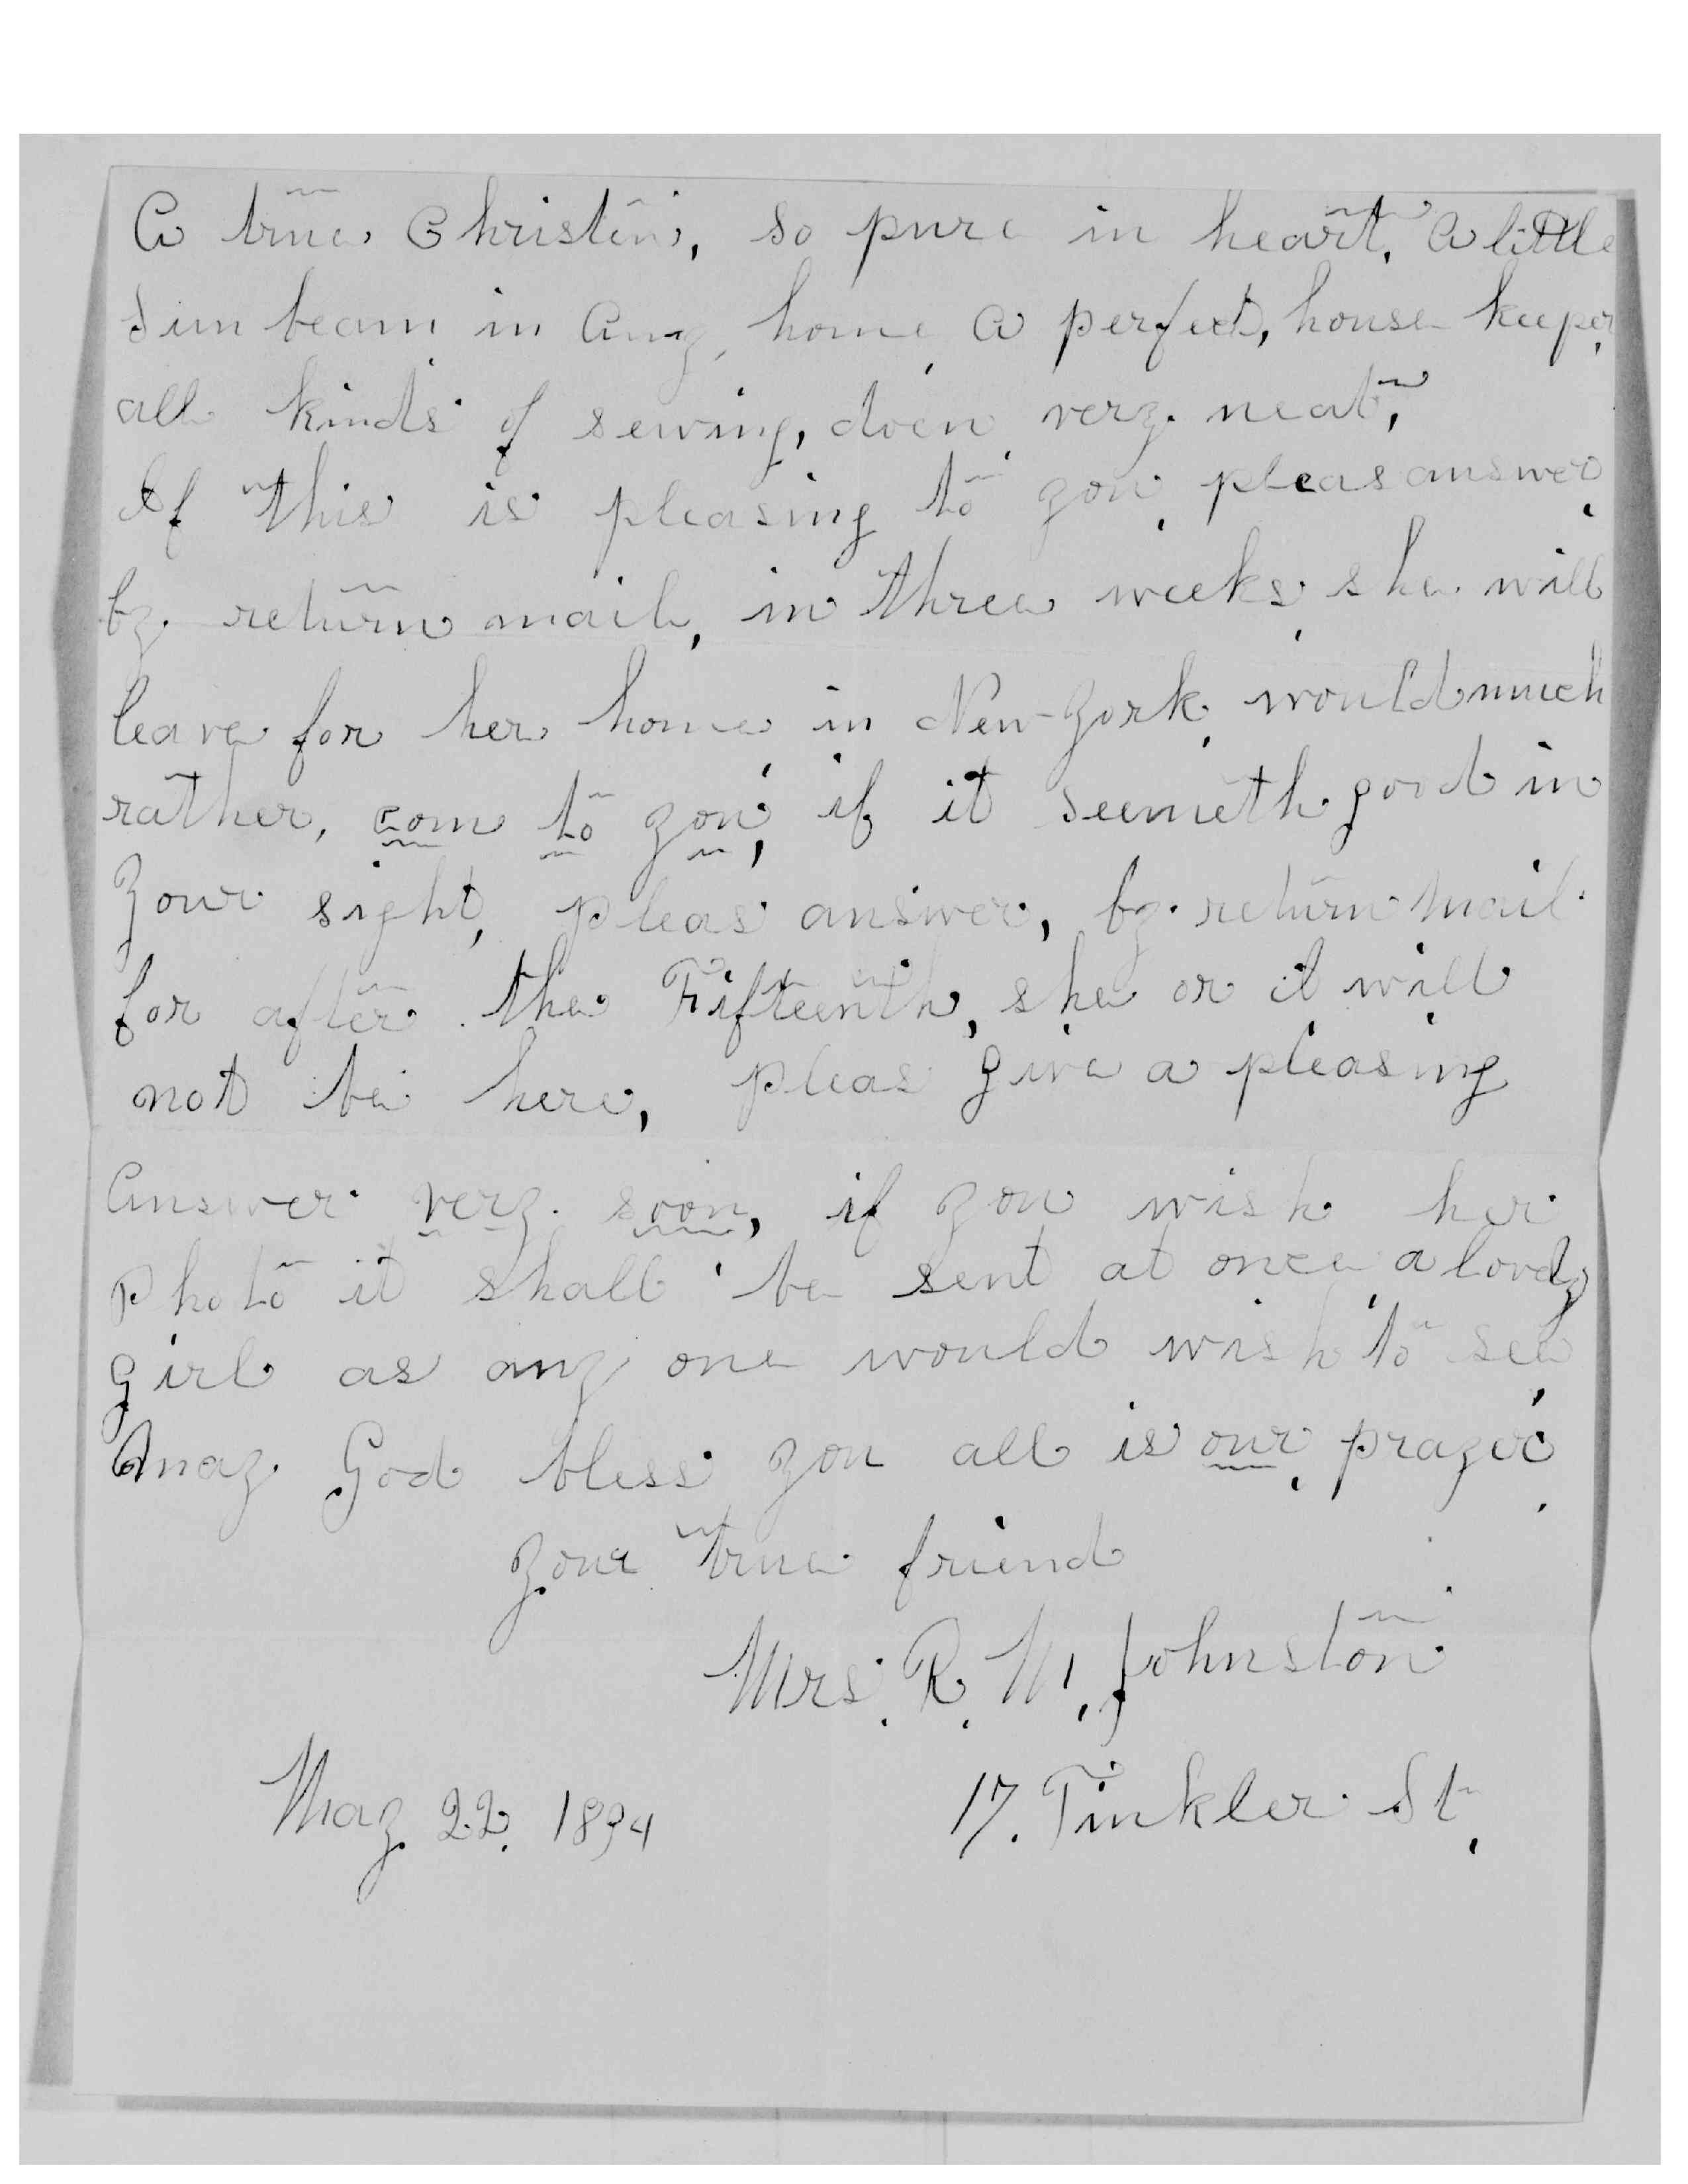 A true Christen, so pure in heart, A little
Sun beam in Any, home, a perfect, house keeper,
all kinds of sewing, doen, very neat,
If this is pleasing to you, pleas answer,
by return mail, in three weeks, she will
leave for her home, in New-York, would much
rather, com to you, if it seemeth good in
Your sight, pleas answer, by return mail
for after the Fifteenth, she or it will
not be here, pleas give a pleasing
Answer very soon, if you wish her
Photo it shall be sent at once, a lovely
girl as any one would wish to see,
May God bless you all is our, prayer,
Your true friend
Mrs. R. M. Johnston
May 22. 1894
17. Tinkler St.